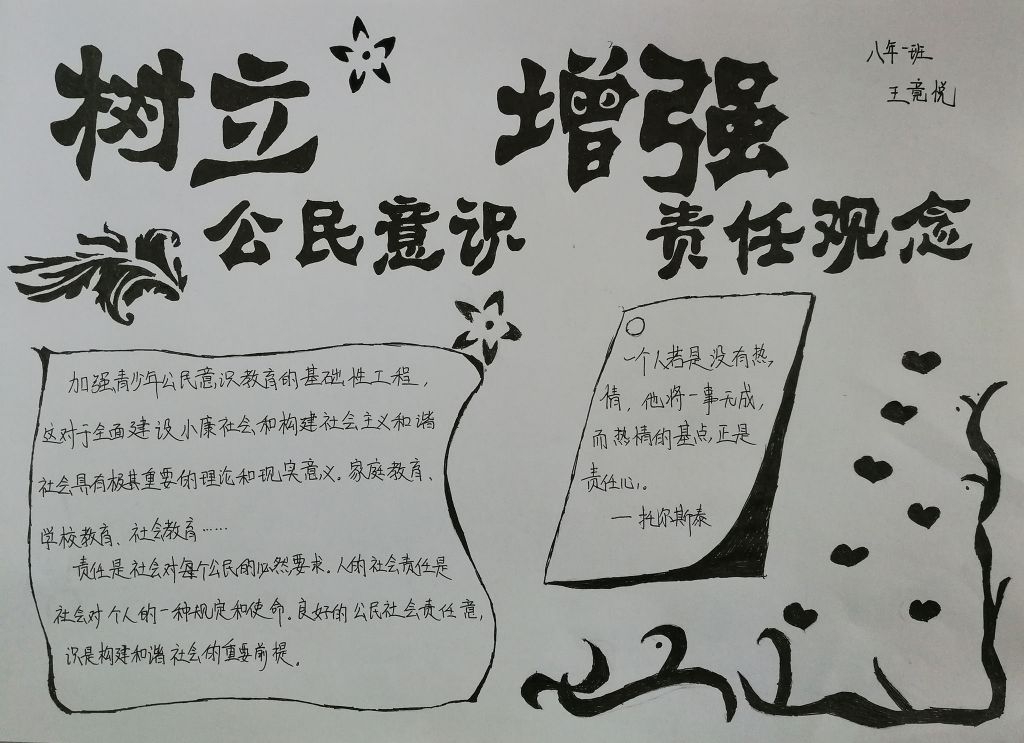 树立 增强
八年一班
王竟悦
公民意识 责任观念
加强青少年公民意识教育的基础性工程，
这对于全面建设小康社会和构建社会主义和谐
社会具有极其重要的理论和现实意义。家庭教育、
学校教育、社会教育……
责任是社会对每个公民的必然要求。人的社会责任是
社会对个人的一种规定和使命。良好的公民社会责任意，
识是构建和谐社会的重要前提。
一个人若是没有热
情，他将一事无成，
而热情的基点正是
责任心。
—托尔斯泰